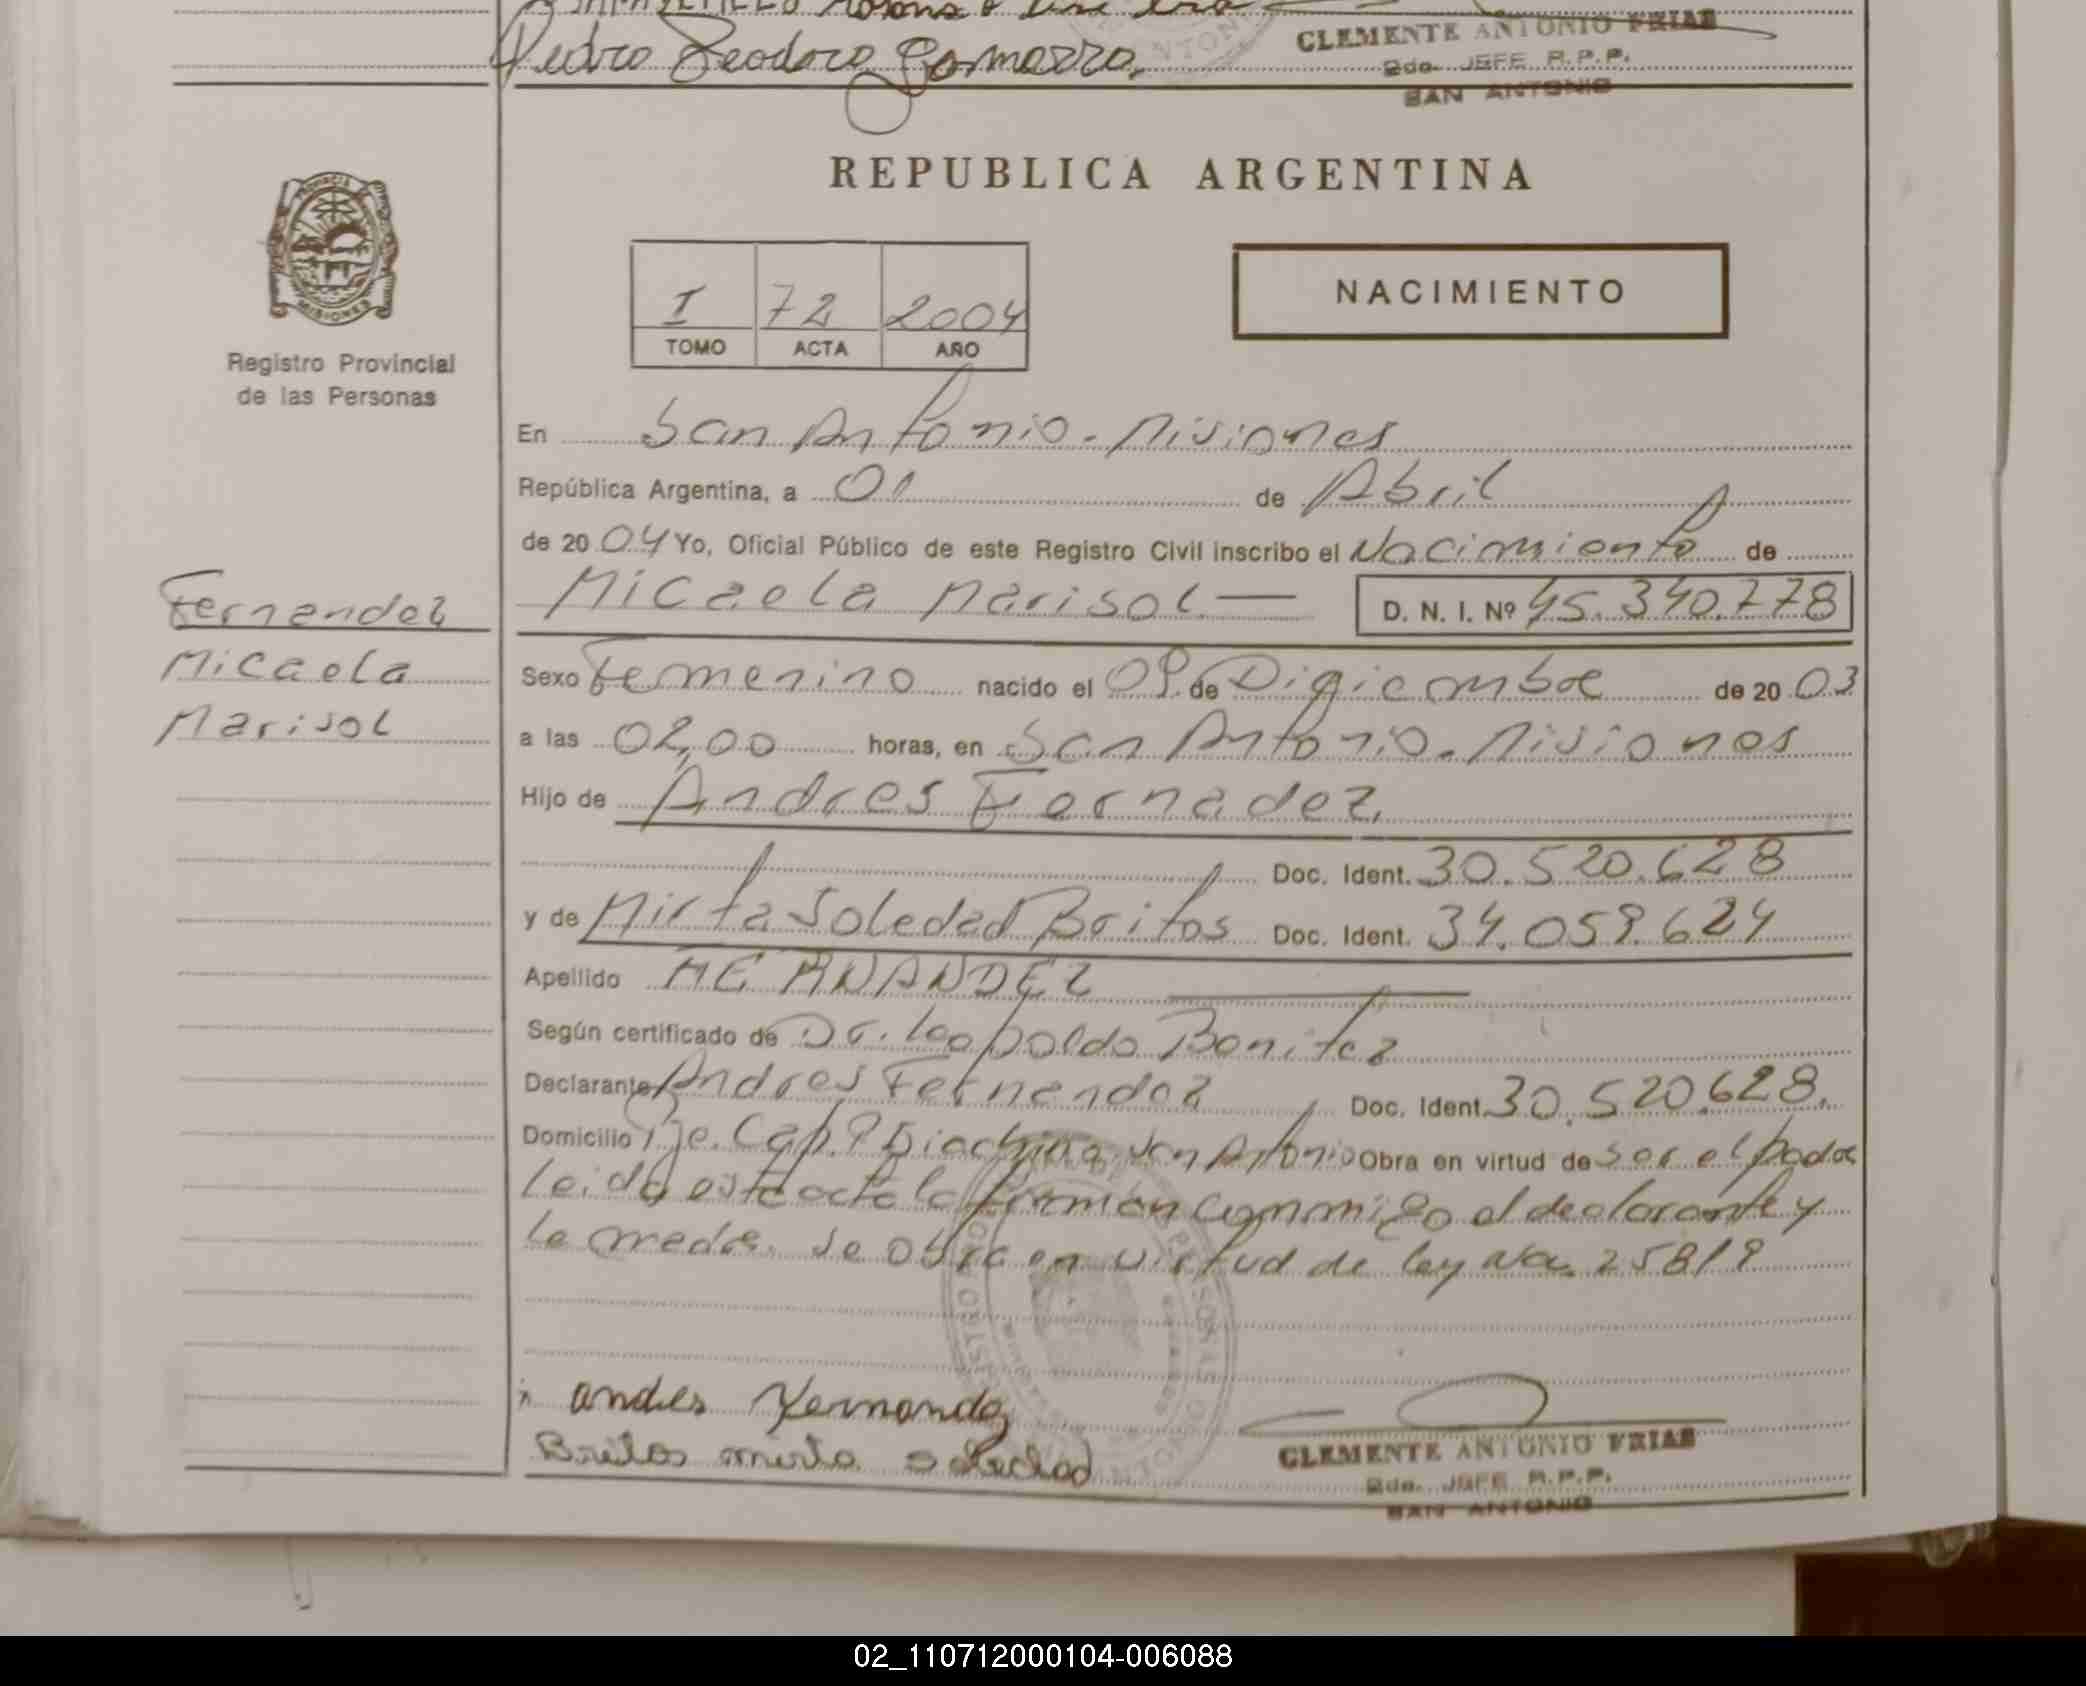 Pedro Teodoro Gomarro.
CLEMENTE ANTONIO FRIAS
2do. JEFE R.P.P.
SAN ANTONIO
PROVINCIA
MISIONES
Registro Provincial
de las Personas
REPUBLICA ARGENTINA
I 72 2004
TOMO ACTA AÑO
NACIMIENTO
En San Antonio - Misiones
República Argentina, a 01 de Abril
de 20 04 Yo, Oficial Público de este Registro Civil inscribo el Nacimiento de
Micaela Marisol — D. N. I. Nº 45.340.778
Fernandez
Micaela
Marisol
Sexo Femenino nacido el 09 de Diciembre de 20 03
a las 02,00 horas, en San Antonio - Misiones
Hijo de Andres Fernadez.
Doc. Ident. 30.520.628
y de Mirta Soledad Britos Doc. Ident. 34.059.624
Apellido
Según certificado de Dr. Leopoldo Benitez
Declarante Andres Fernandez Doc. Ident. 30.520.628.
Domicilio San Antonio Obra en virtud de ser el padre
Leida esta acta la firman conmigo el declarante y
la madre. Se obra en virtud de ley No. 25819
andres Fernandez
Britos mirta soledad
CLEMENTE ANTONIO FRIAS
2do. JEFE R.P.P.
SAN ANTONIO
02_110712000104-006088